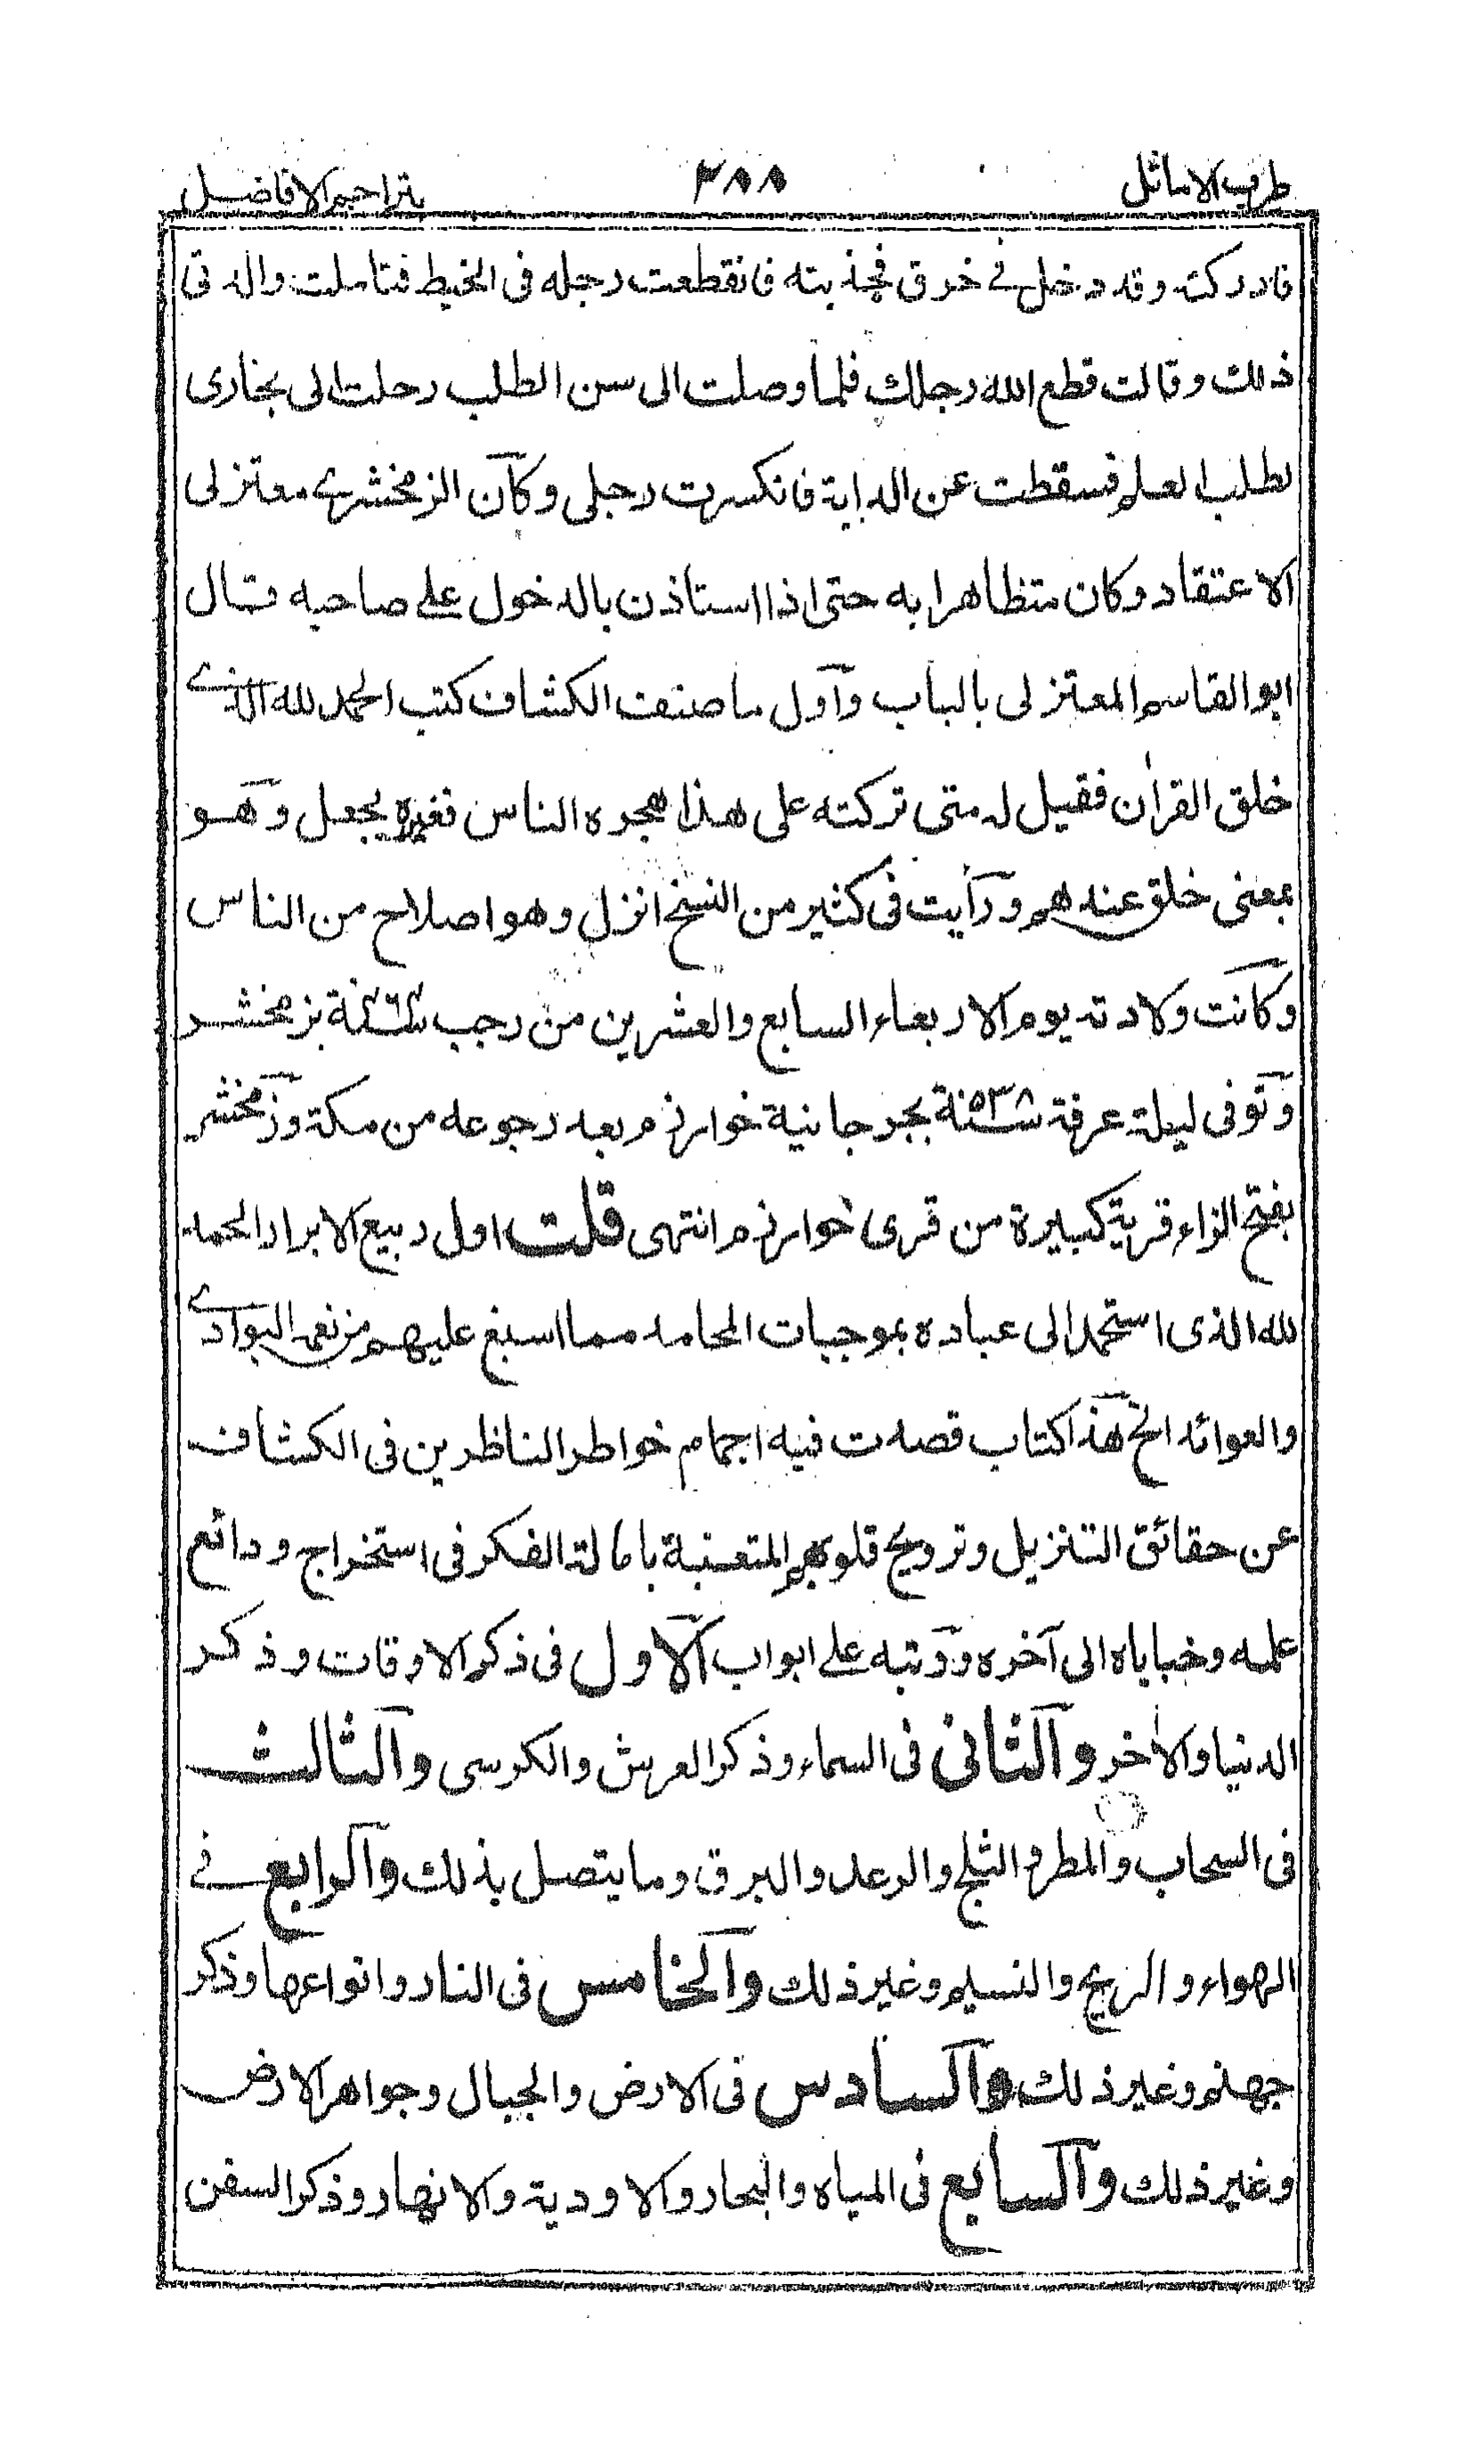 طرب الاماثل ٣٨٨ بتراجم الافاضل
فادركته وقد دخل فى خرق فجذبته فانقطعت رجله فى الخيط فتاملت والدتى
ذلك وقالت قطع الله رجلك فلما وصلت الى سن الطلب رحلت الى بخارى
لطلب العلم فسقطت عن الدابة فانكسرت رجلى وكان الزمخشرى معتزلى
الاعتقاد وكان متظاهرا به حتى اذا استاذن بالدخول على صاحبه قال
ابو القاسم المعتزلى بالباب واول ما صنف الكشاف كتب الحمد لله الذى
خلق القرآن فقيل له متى تركته على هذا هجره الناس فغيره بجعل وهو
بمعنى خلق عندهم ورأيت فى كثير من النسخ انزل وهو اصلاح من الناس
وكانت ولادته يوم الاربعاء السابع والعشرين من رجب سنة ٤٦٧ بزمخشر
وتوفى ليلة عرفة سنة ٥٣٨ بجرجانية خوارزم بعد رجوعه من مكة وزمخشر
بفتح الزاء قرية كبيرة من قرى خوارزم انتهى قلت اول ربيع الابرار الحمد
لله الذى استحمد الى عباده بموجبات المحامد مما اسبغ عليهم من نعمه البوادى
والعوائد الخ هذا كتاب قصدت فيه اجمام خواطر الناظرين فى الكشاف
عن حقائق التنزيل وترويح قلوبهم المتعبة باحالة الفكر فى استخراج ودائع
علمه وخباياه الى آخره ورتبه على ابواب الاول فى ذكر الاوقات وذكر
الدنيا والآخر والثانى فى السماء وذكر العرش والكرسى والثالث
فى السحاب والمطر والثلج والرعد والبرق وما يتصل بذلك والرابع فى
الهواء والريح والنسيم وغير ذلك والخامس فى النار وانواعها وذكر
جهنم وغير ذلك والسادس فى الارض والجبال وجواهر الارض
وغير ذلك والسابع فى المياه والبحار والاودية والانهار وذكر السفن